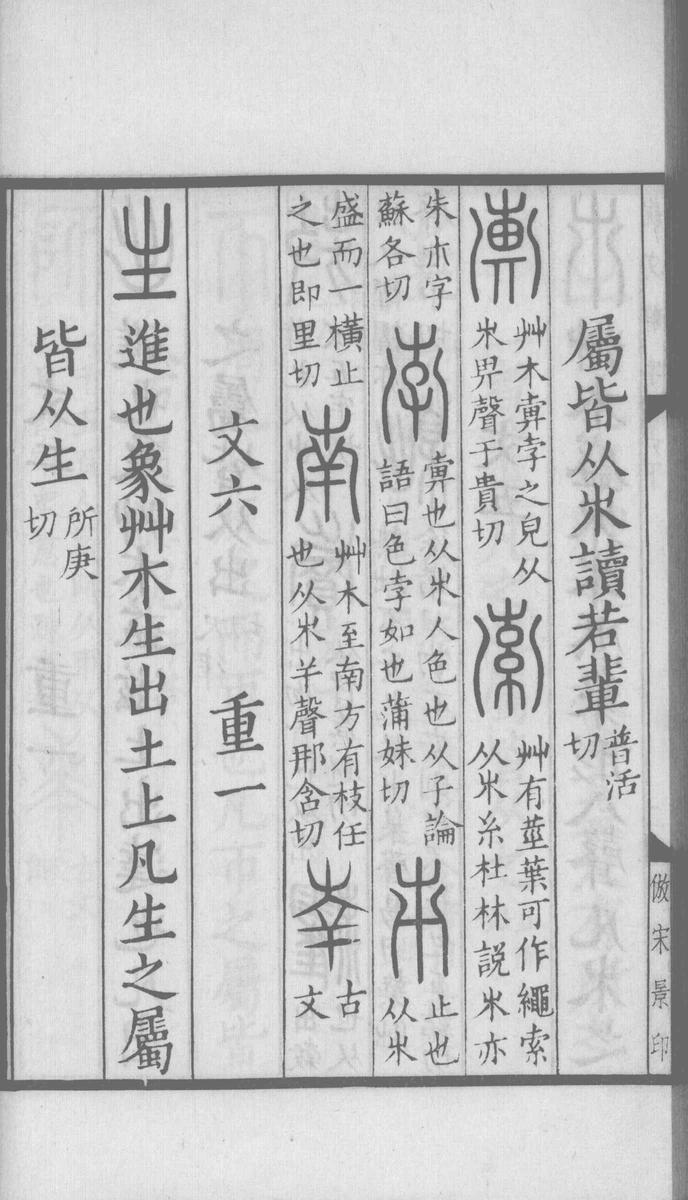 屬皆从𣎵讀若輩普活切
艸木孛之皃从𣎵畀聲于貴切
索艸有莖葉可作繩索从𣎵糸杜林說𣎵亦
朱巿字蘇各切
孛也从𣎵人色也从子論語曰色孛如也蒲妹切
𠂔止也从𣎵
盛而一橫止之也即里切
南艸木至南方有枝任也从𣎵𢆉聲那含切
古文
文六 重一
生進也象艸木生出土上凡生之屬
皆从生所庚切
倣宋景印